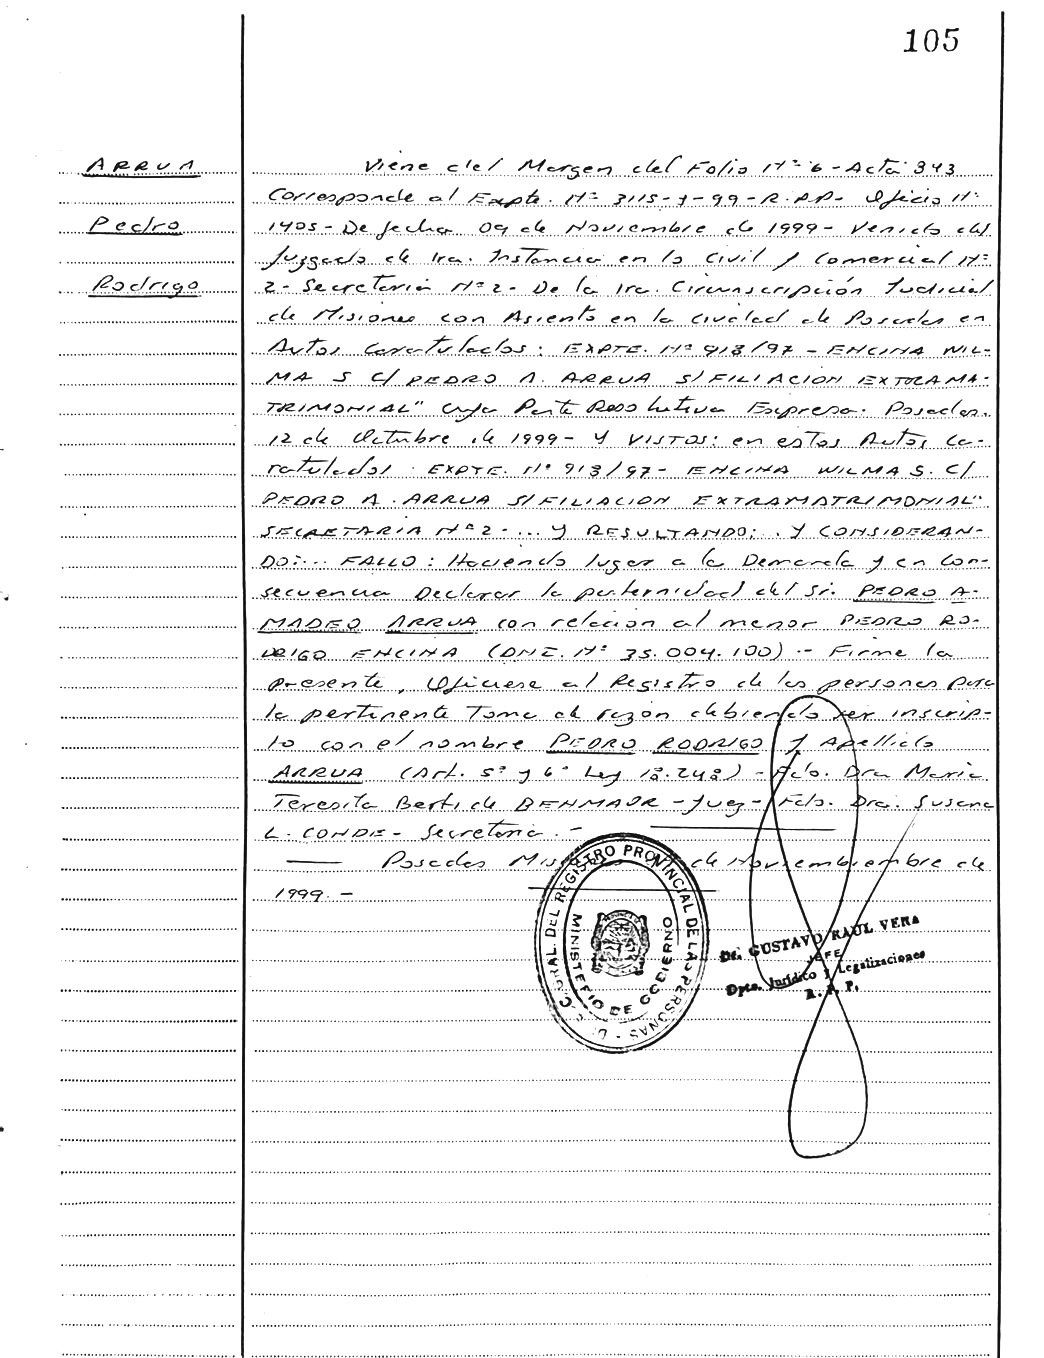 105
ARRUA
Pedro
Rodrigo
Viene del Margen del Folio Nº 6 - Acta 343
Corresponde al Expte. Nº 3115-y-99-R.P.P- Oficio Nº
1405- De fecha 09 de Noviembre de 1999- Venido del
Juzgado de 1ra. Instancia en lo Civil y Comercial Nº
2- Secretaria Nº 2- De la 1ra. Circunscripción Judicial
de Misiones con Asiento en la Ciudad de Posadas en
Autos Caratulados: EXPTE. Nº 913/97 - ENCINA WIL-
MA S C/ PEDRO A. ARRUA S/ FILIACION EXTRAMA-
TRIMONIAL" cuya Parte Resolutiva Expresa: Posadas.
12 de Octubre de 1999- Y VISTOS: en estos Autos Ca-
ratulados: EXPTE. Nº 913/97- ENCINA WILMA S. C/
PEDRO A. ARRUA S/ FILIACION EXTRAMATRIMONIAL"
SECRETARIA Nº 2-... Y RESULTANDO:.. Y CONSIDERAN-
DO:... FALLO: Haciendo lugar a la Demanda y en Con-
secuencia Declarar la paternidad del Sr. PEDRO A-
MADEO ARRUA con relacion al menor PEDRO RO-
DRIGO ENCINA (DNI. Nº 35.004.100) -- Firme la
presente, Oficiese al Registro de las personas para
la pertinente Toma de razón debiendo ser inscrip-
to con el nombre PEDRO RODRIGO y Apellido
ARRUA (Art. 5º y 6º Ley 18.248) - Fdo. Dra Maria
Teresita Berti de BENMAOR - Juez - Fdo. Dra. Susana
L. CONDE - Secretaria. -
Posadas de Noviembiembre de
1999. -
GRAL. DEL REGISTRO PROVINCIAL DE LAS PERSONAS
MINISTERIO DE GOBIERNO
Dr. GUSTAVO RAUL VERA
JEFE
Dpto. Jurídico y Legalizaciones
R. P. P.